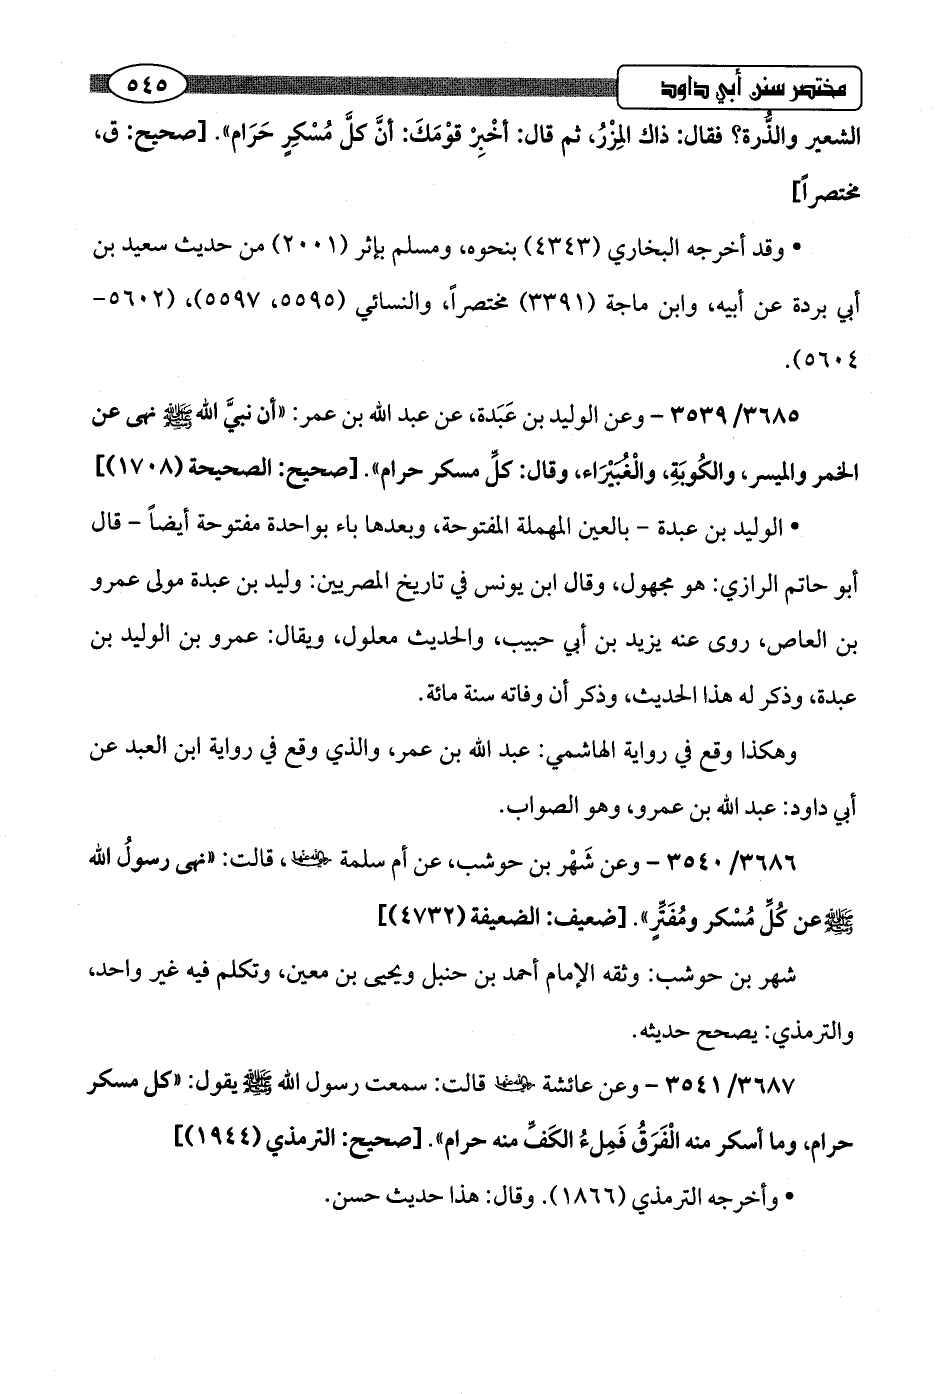 مختصر سنن أبي داود
٥٤٥
الشعير والذُّرة؟ فقال: ذاك المِزْرُ، ثم قال: أخْبِرْ قوْمَكَ: أنَّ كلَّ مُسْكِرٍ حَرَام». [صحيح: ق،
مختصراً]
• وقد أخرجه البخاري (٤٣٤٣) بنحوه، ومسلم بإثر (٢٠٠١) من حديث سعيد بن
أبي بردة عن أبيه، وابن ماجة (٣٣٩١) مختصراً، والنسائي (٥٥٩٥، ٥٥٩٧)، (٥٦٠٢-
٥٦٠٤).
٣٥٣٩/٣٦٨٥ - وعن الوليد بن عَبَدة، عن عبد الله بن عمر: «أن نبيَّ الله ﷺ نهى عن
الخمر والميسر، والكُوبَةِ، والْغُبَيْرَاء، وقال: كلِّ مسكر حرام». [صحيح: الصحيحة (١٧٠٨)]
• الوليد بن عبدة - بالعين المهملة المفتوحة، وبعدها باء بواحدة مفتوحة أيضاً - قال
أبو حاتم الرازي: هو مجهول، وقال ابن يونس في تاريخ المصريين: وليد بن عبدة مولى عمرو
بن العاص، روى عنه يزيد بن أبي حبيب، والحديث معلول، ويقال: عمرو بن الوليد بن
عبدة، وذكر له هذا الحديث، وذكر أن وفاته سنة مائة.
وهكذا وقع في رواية الهاشمي: عبد الله بن عمر، والذي وقع في رواية ابن العبد عن
أبي داود: عبد الله بن عمرو، وهو الصواب.
٣٥٤٠/٣٦٨٦ - وعن شَهْر بن حوشب، عن أم سلمة رضي الله عنها، قالت: «نهى رسولُ الله
ﷺ عن كُلِّ مُسْكر ومُفَتِّرٍ». [ضعيف: الضعيفة (٤٧٣٢)]
شهر بن حوشب: وثقه الإمام أحمد بن حنبل ويحيى بن معين، وتكلم فيه غير واحد،
والترمذي: يصحح حديثه.
٣٥٤١/٣٦٨٧ - وعن عائشة رضي الله عنها قالت: سمعت رسول الله ﷺ يقول: «كل مسكر
حرام، وما أسكر منه الْفَرَقُ فَمِلءُ الكَفِّ منه حرام». [صحيح: الترمذي (١٩٤٤)]
• وأخرجه الترمذي (١٨٦٦). وقال: هذا حديث حسن.